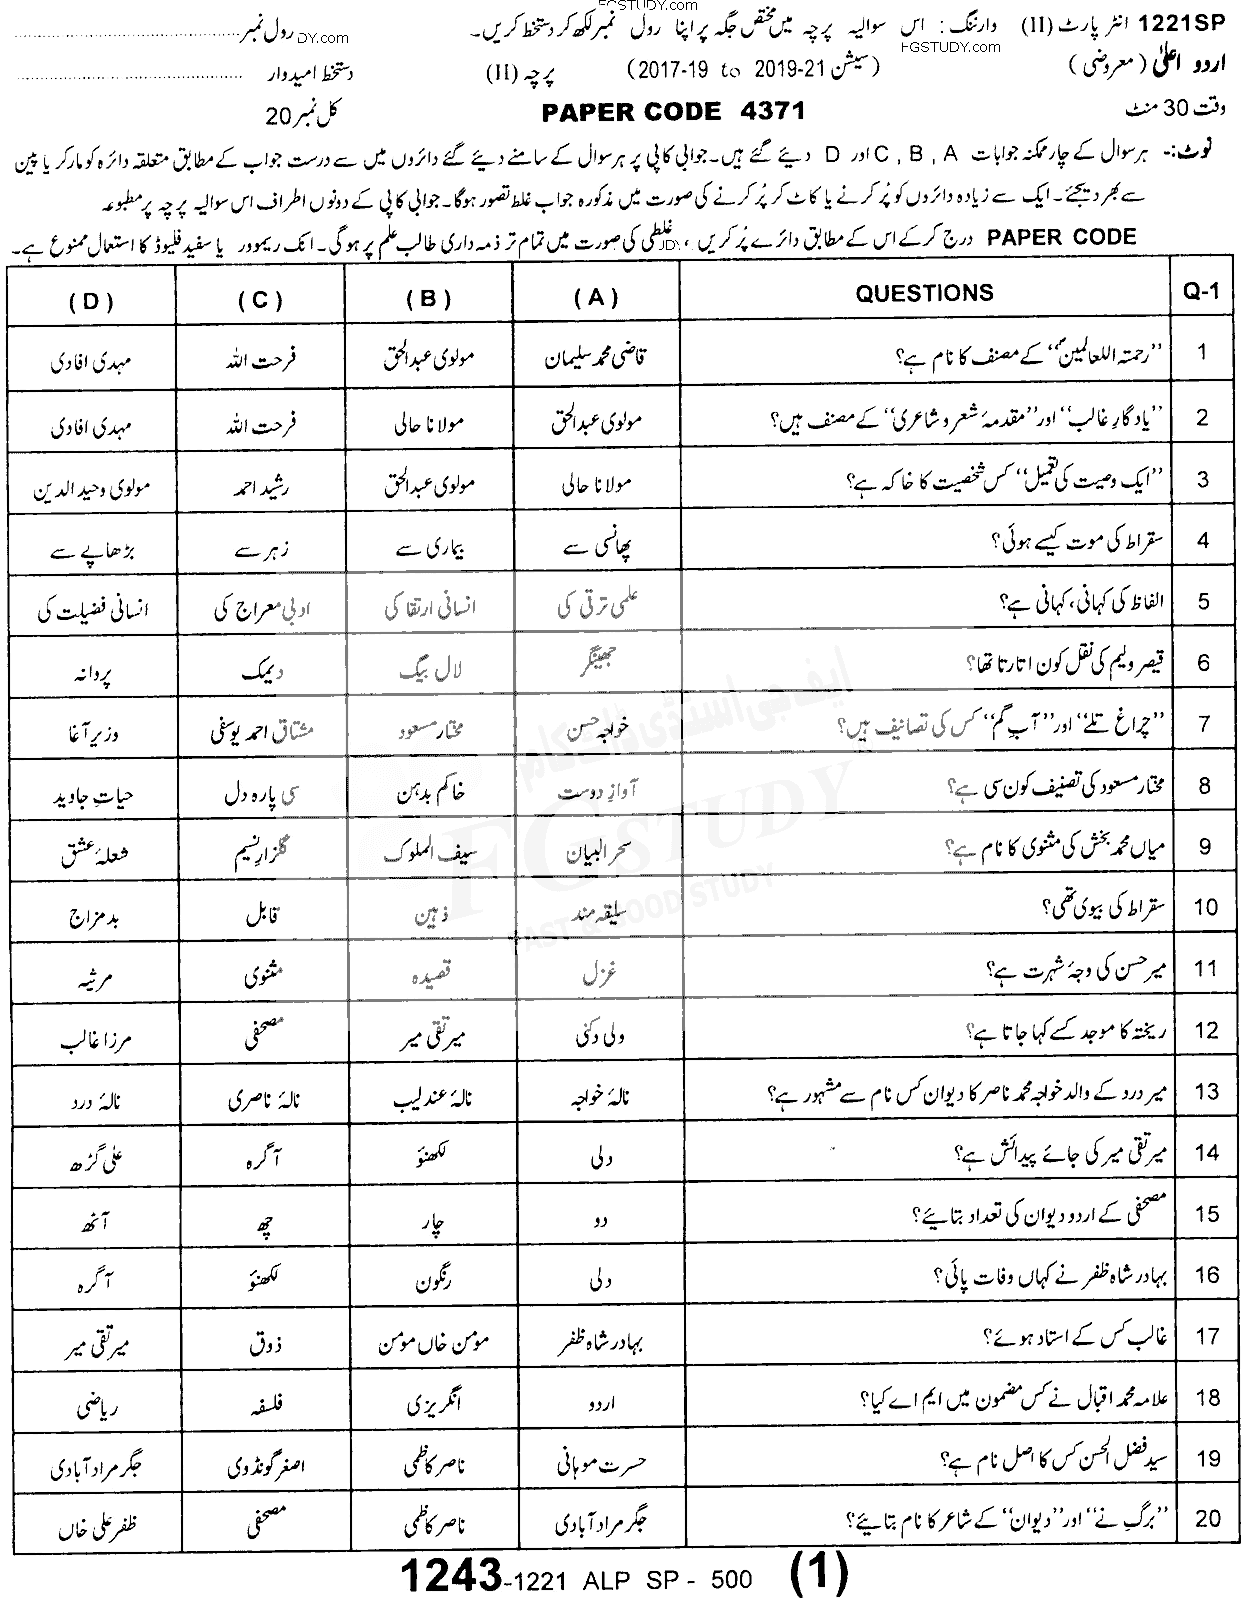 FGSTUDY.com
1221SP انٹر پارٹ (II) وارننگ: اس سوالیہ پرچہ میں مختص جگہ پر اپنا رول نمبر لکھ کر دستخط کریں۔ رول نمبر DY.com
FGSTUDY.com
اردو اعلیٰ (معروضی) (سیشن 2017-19 to 2019-21) پرچہ (II) دستخط امیدوار
وقت 30 منٹ PAPER CODE 4371 کل نمبر 20
نوٹ:- ہر سوال کے چار ممکنہ جوابات A , B , C اور D دیئے گئے ہیں۔ جوابی کاپی پر ہر سوال کے سامنے دیئے گئے دائروں میں سے درست جواب کے مطابق متعلقہ دائرہ کو مارکر یا پین
سے بھر دیجئے۔ ایک سے زیادہ دائروں کو پُر کرنے یا کاٹ کر پُر کرنے کی صورت میں مذکورہ جواب غلط تصور ہوگا۔ جوابی کاپی کے دونوں اطراف اس سوالیہ پرچہ پر مطبوعہ
PAPER CODE درج کر کے اس کے مطابق دائرے پُر کریں، غلطی کی صورت میں تمام تر ذمہ داری طالب علم پر ہوگی۔ انک ریموور یا سفید فلیوڈ کا استعمال ممنوع ہے۔
Q-1 QUESTIONS (A) (B) (C) (D)
1 "رحمتہ اللعالمینؐ" کے مصنف کا نام ہے؟ قاضی محمد سلیمان مولوی عبدالحق فرحت اللہ مہدی افادی
2 "یادگارِ غالب" اور "مقدمۂ شعر و شاعری" کے مصنف ہیں؟ مولوی عبدالحق مولانا حالی فرحت اللہ مہدی افادی
3 "ایک وصیت کی تعمیل" کس شخصیت کا خاکہ ہے؟ مولانا حالی مولوی عبدالحق رشید احمد مولوی وحید الدین
4 سقراط کی موت کیسے ہوئی؟ پھانسی سے بیماری سے زہر سے بڑھاپے سے
5 الفاظ کی کہانی، کہانی ہے؟ علمی ترقی کی انسانی ارتقا کی ادبی معراج کی انسانی فضیلت کی
6 قیصر ولیم کی نقل کون اتارتا تھا؟ جھینگر لال بیگ دیمک پروانہ
7 "چراغ تلے" اور "آبِ گم" کس کی تصانیف ہیں؟ خواجہ حسن مختار مسعود مشتاق احمد یوسفی وزیر آغا
8 مختار مسعود کی تصنیف کون سی ہے؟ آوازِ دوست خاکم بدہن سی پارہ دل حیاتِ جاوید
9 میاں محمد بخش کی مثنوی کا نام ہے؟ سحر البیان سیف الملوک گلزارِ نسیم شعلۂ عشق
10 سقراط کی بیوی تھی؟ سلیقہ مند ذہین قابل بدمزاج
11 میر حسن کی وجۂ شہرت ہے؟ غزل قصیدہ مثنوی مرثیہ
12 ریختہ کا موجد کسے کہا جاتا ہے؟ ولی دکنی میر تقی میر مصحفی مرزا غالب
13 میر درد کے والد خواجہ محمد ناصر کا دیوان کس نام سے مشہور ہے؟ نالۂ خواجہ نالۂ عندلیب نالۂ ناصری نالۂ درد
14 میر تقی میر کی جائے پیدائش ہے؟ دلی لکھنؤ آگرہ علی گڑھ
15 مصحفی کے اردو دیوان کی تعداد بتایئے؟ دو چار چھ آٹھ
16 بہادر شاہ ظفر نے کہاں وفات پائی؟ دلی رنگون لکھنؤ آگرہ
17 غالب کس کے استاد ہوئے؟ بہادر شاہ ظفر مومن خاں مومن ذوق میر تقی میر
18 علامہ محمد اقبال نے کس مضمون میں ایم اے کیا؟ اردو انگریزی فلسفہ ریاضی
19 سید فضل الحسن کس کا اصل نام ہے؟ حسرت موہانی ناصر کاظمی اصغر گونڈوی جگر مراد آبادی
20 "برگِ نے" اور "دیوان" کے شاعر کا نام بتایئے؟ جگر مراد آبادی ناصر کاظمی مصحفی ظفر علی خاں
ایف جی اسٹڈی ڈاٹ کام
FGSTUDY
FAST & GOOD STUDY
1243-1221 ALP SP - 500 (1)